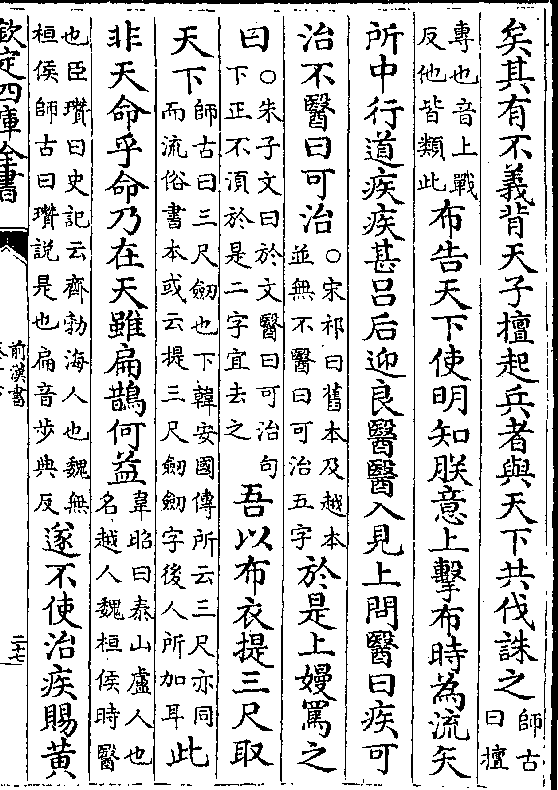 矣其有不義背天子擅起兵者與天下共伐誅之師古曰擅
專也音上戰反他皆類此布告天下使明知朕意上擊布時為流矢
所中行道疾疾甚呂后迎良醫醫入見上問醫曰疾可
治不醫曰可治○宋祁曰舊本及越本並無不醫曰可治五字於是上嫚罵之
曰○朱子文曰於文醫曰可治句下正不須於是二字宜去之吾以布衣提三尺取
天下師古曰三尺劒也下韓安國傳所云三尺亦同而流俗書本或云提三尺劒劒字後人所加耳此
非天命乎命乃在天雖扁鵲何益韋昭曰泰山盧人也名越人魏桓侯時醫
也臣瓚曰史記云齊勃海人也魏無桓侯師古曰瓚說是也扁音步典反遂不使治疾賜黃
欽定四庫全書
前漢書
二十七